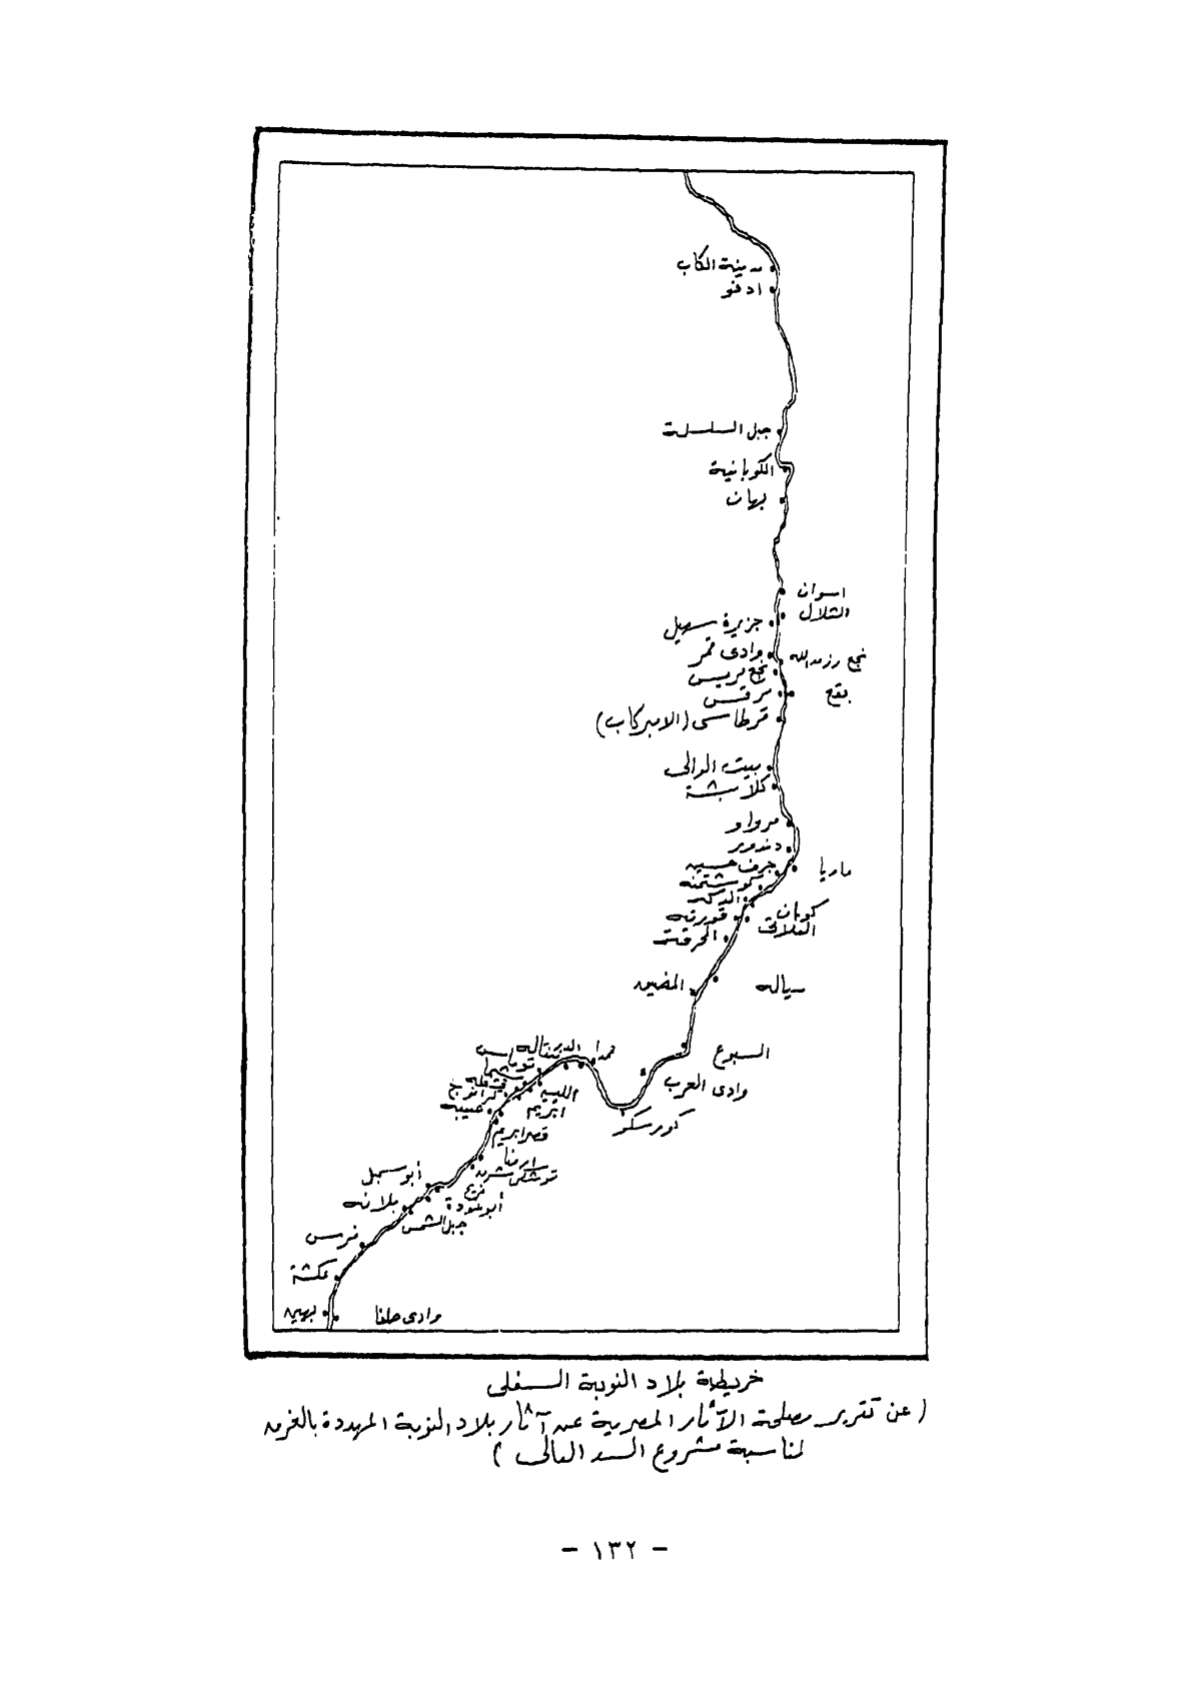 مدينة الكاب
ادفو
جبل السلسلة
الكوبانية
بهان
اسوان
الشلال
جزيرة سهيل
وادى قمر
نجع رزق الله
نجع مريس
مرقس
بقع
قرطاسى (الامبركاب)
بيت الوالى
كلابشة
مرواو
دندور
ماريا
جرف حسين
كوشتمنه
الدكه
كوبان
العلاقى
قورته
المحرقة
سياله
المضيق
السبوع
وادى العرب
كورسكو
توماس
عنيبه
ابريم
قصر ابريم
ارمنا
توشكى شرق
أبو سمبل
بلانه
أبو عودة
جبل الشمس
فرس
عكشة
بهين
وادى حلفا
خريطة بلاد النوبة السفلى
( عن تقرير مصلحة الآثار المصرية عن آثار بلاد النوبة المهددة بالغرق
لمناسبة مشروع السد العالى )
- ١٣٢ -